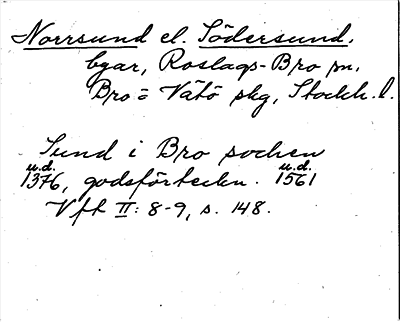 Norrsund el. Södersund,
byar, Roslags-Bro sn.
Bro o Vätö skg, Stockh. l.
Sund i Bro socken
u.d. u.d.
1376, godsförteckn. 1561
Vft II: 8-9, s. 148.